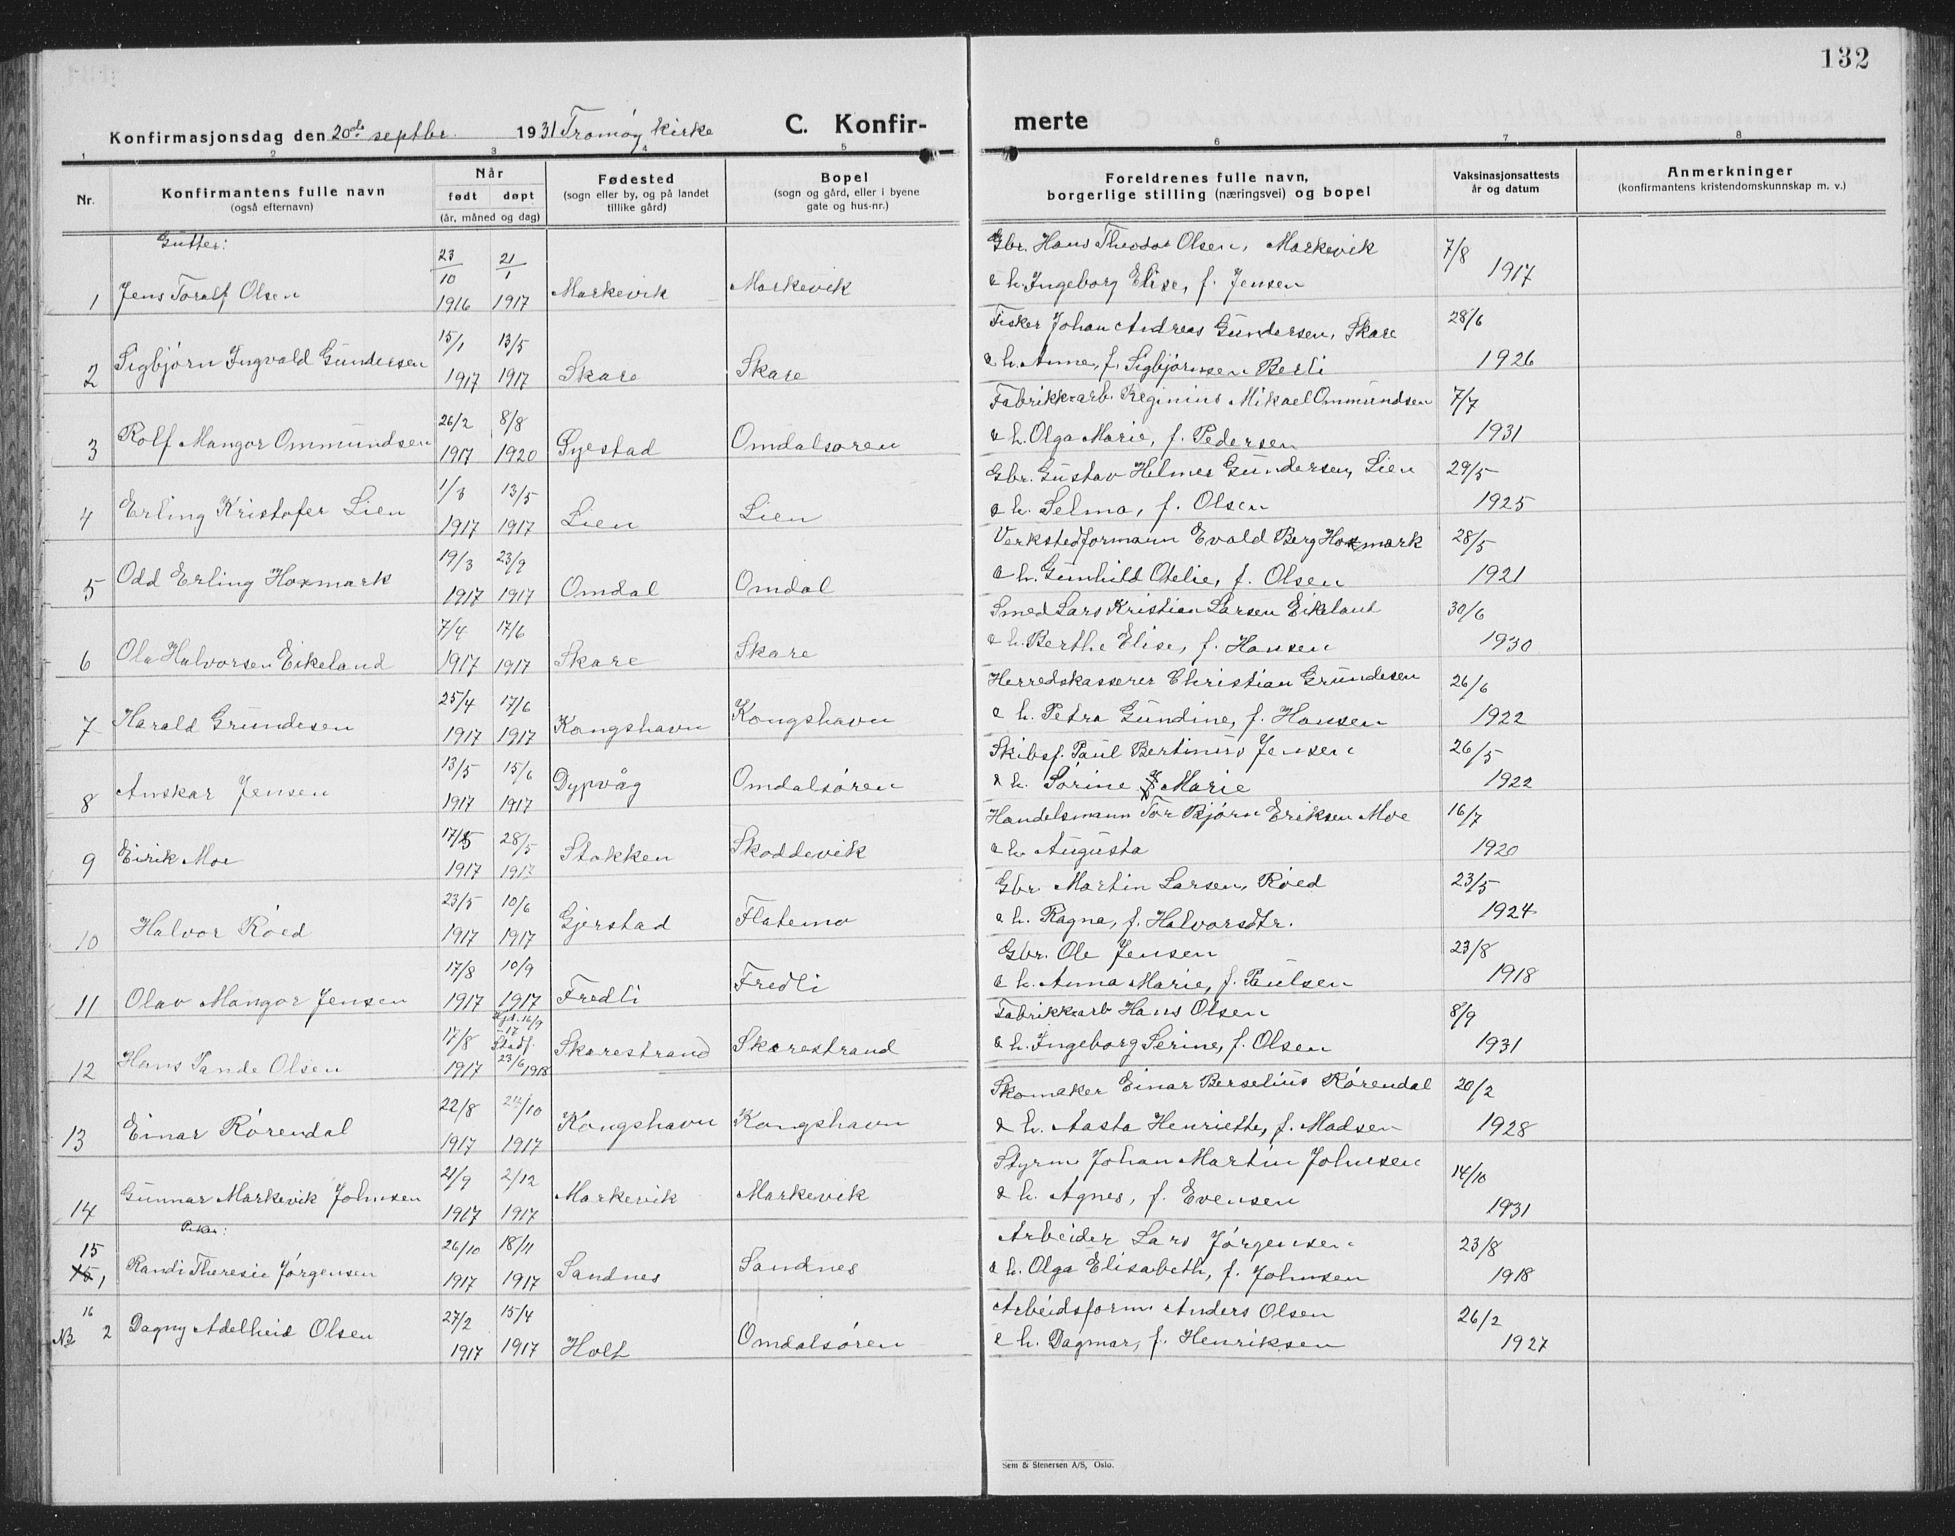 132
Konfirmasjonsdag den 20de septbr. 1931 Tromøy kirke C. Konfir-
merte
1 2 3 4 5 6 7 8
Nr.
Konfirmantens fulle navn
(også efternavn)
Når
født døpt
(år, måned og dag)
Fødested
(sogn eller by, og på landet
tillike gård)
Bopel
(sogn og gård, eller i byene
gate og hus-nr.)
Foreldrenes fulle navn,
borgerlige stilling (næringsvei) og bopel
Vaksinasjonsattests
år og datum
Anmerkninger
(konfirmantens kristendomskunnskap m. v.)
Gutter:
23/10 21/1 Gbr. Hans Theodor Olsen, Markevik 7/8
1 Jens Toralf Olsen 1916 1917 Markevik Markevik & h. Ingeborg Elise, f. Jensen 1917
15/1 13/5 Fisker Johan Andreas Gundersen, Skare 28/6
2 Sigbjørn Ingvald Gundersen 1917 1917 Skare Skare & h. Anne, f. Sigbjørnsen Berli 1926
26/2 8/8 Fabrikkarb. Reginius Mikael Ommundsen 7/7
3 Rolf Mangor Ommundsen 1917 1920 Gjestad Omdalsøren & h. Olga Marie, f. Pedersen 1931
1/3 13/5 Gbr. Gustav Helmer Gundersen, Lien 29/5
4 Erling Kristofer Lien 1917 1917 Lien Lien & h. Selma, f. Olsen 1925
19/3 23/9 Verkstedformann Evald Berg Hoxmark 28/5
5 Odd Erling Hoxmark 1917 1917 Omdal Omdal & h. Gunhild Otelie, f. Olsen 1921
7/4 17/6 Smed Lars Kristian Larsen Eikeland 30/6
6 Ola Halvorsen Eikeland 1917 1917 Skare Skare & h. Berthe Elise, f. Hansen 1930
25/4 17/6 Herredskasserer Christian Grundesen 26/6
7 Harald Grundesen 1917 1917 Kongshavn Kongshavn & h. Petra Gundine, f. Hansen 1922
13/5 15/6 Skibsf. Paul Bertinius Jensen 26/5
8 Anskar Jensen 1917 1917 Dypvåg Omdalsøren & h. Sørine Marie 1922
17/5 28/5 Handelsmann Tor Bjørn Eriksen Moe 16/7
9 Eirik Moe 1917 1917 Stokken Skoddevik & h. Augusta 1920
23/5 10/6 Gbr. Martin Larsen, Røed 23/5
10 Halvor Røed 1917 1917 Gjerstad Flatemo & h. Ragna, f. Halvorsdtr. 1924
17/8 10/9 Gbr. Ole Jensen 23/8
11 Olav Mangor Jensen 1917 1917 Fredli Fredli & h. Anna Marie, f. Paulsen 1918
17/8 Hjd. 16/9 -17 Stadf. Fabrikkarb Hans Olsen 8/9
12 Hans Tande Olsen 1917 23/6 1918 Skarestrand Skarestrand & h. Ingeborg Serine, f. Olsen 1931
22/8 21/10 Skomaker Einar Berselius Rørendal 20/2
13 Einar Rørendal 1917 1917 Kongshavn Kongshavn & h. Aasta Henriette, f. Madsen 1928
21/9 2/12 Styrm. Johan Martin Johnsen 14/10
14 Gunnar Markevik Johnsen 1917 1917 Markevik Markevik & h. Agnes, f. Evensen 1931
Piker:
15 26/10 18/11 Arbeider Lars Jørgensen 23/8
15, 1 Randi Theresie Jørgensen 1917 1917 Sandnes Sandnes & h. Olga Elisabeth, f. Johnsen 1918
16 27/2 15/4 Arbeidsform. Anders Olsen 26/2
NB 2 Dagny Adelheid Olsen 1917 1917 Holt Omdalsøren & h. Dagmar, f. Henriksen 1927
Sem & Stenersen A/S, Oslo.